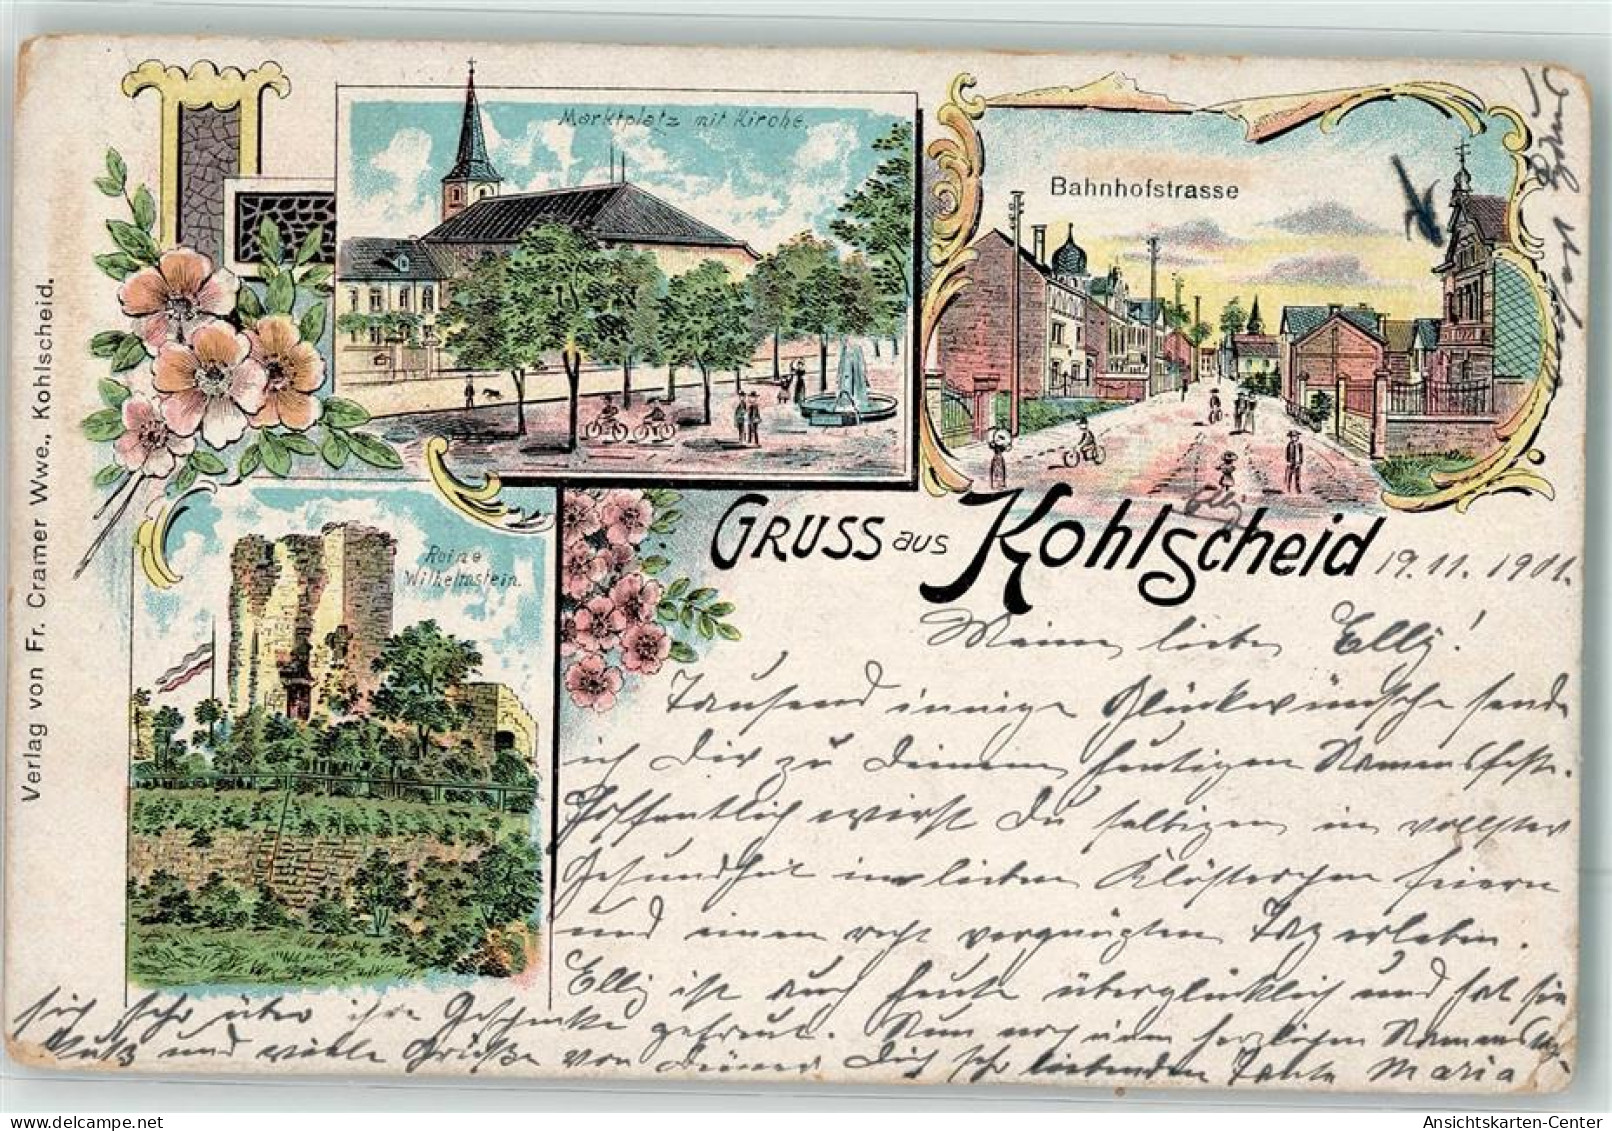 Marktplatz mit Kirche.
Bahnhofstrasse
Ruine
Wilhelmstein.
Verlag von Fr. Cramer Wwe., Kohlscheid.
GRUSS aus Kohlscheid
Elly
19.11.1901.
Meine liebe Elly!
Tausend innige Glückwünsche sende
ich Dir zu Deinem heutigen Namensfeste.
Hoffentlich wirst Du selbigen in vollster
Gesundheit im lieben Klösterchen feiern
und einen recht vergnügten Tag erleben.
Elly ist auch heute überglücklich und hat sie
sich sehr über ihre Geschenke gefreut. Nun noch einen herzlichen Namenstags
Kuß und viele Grüße von Deiner Dich sehr liebenden Tante Maria
Ansichtskarten-Center